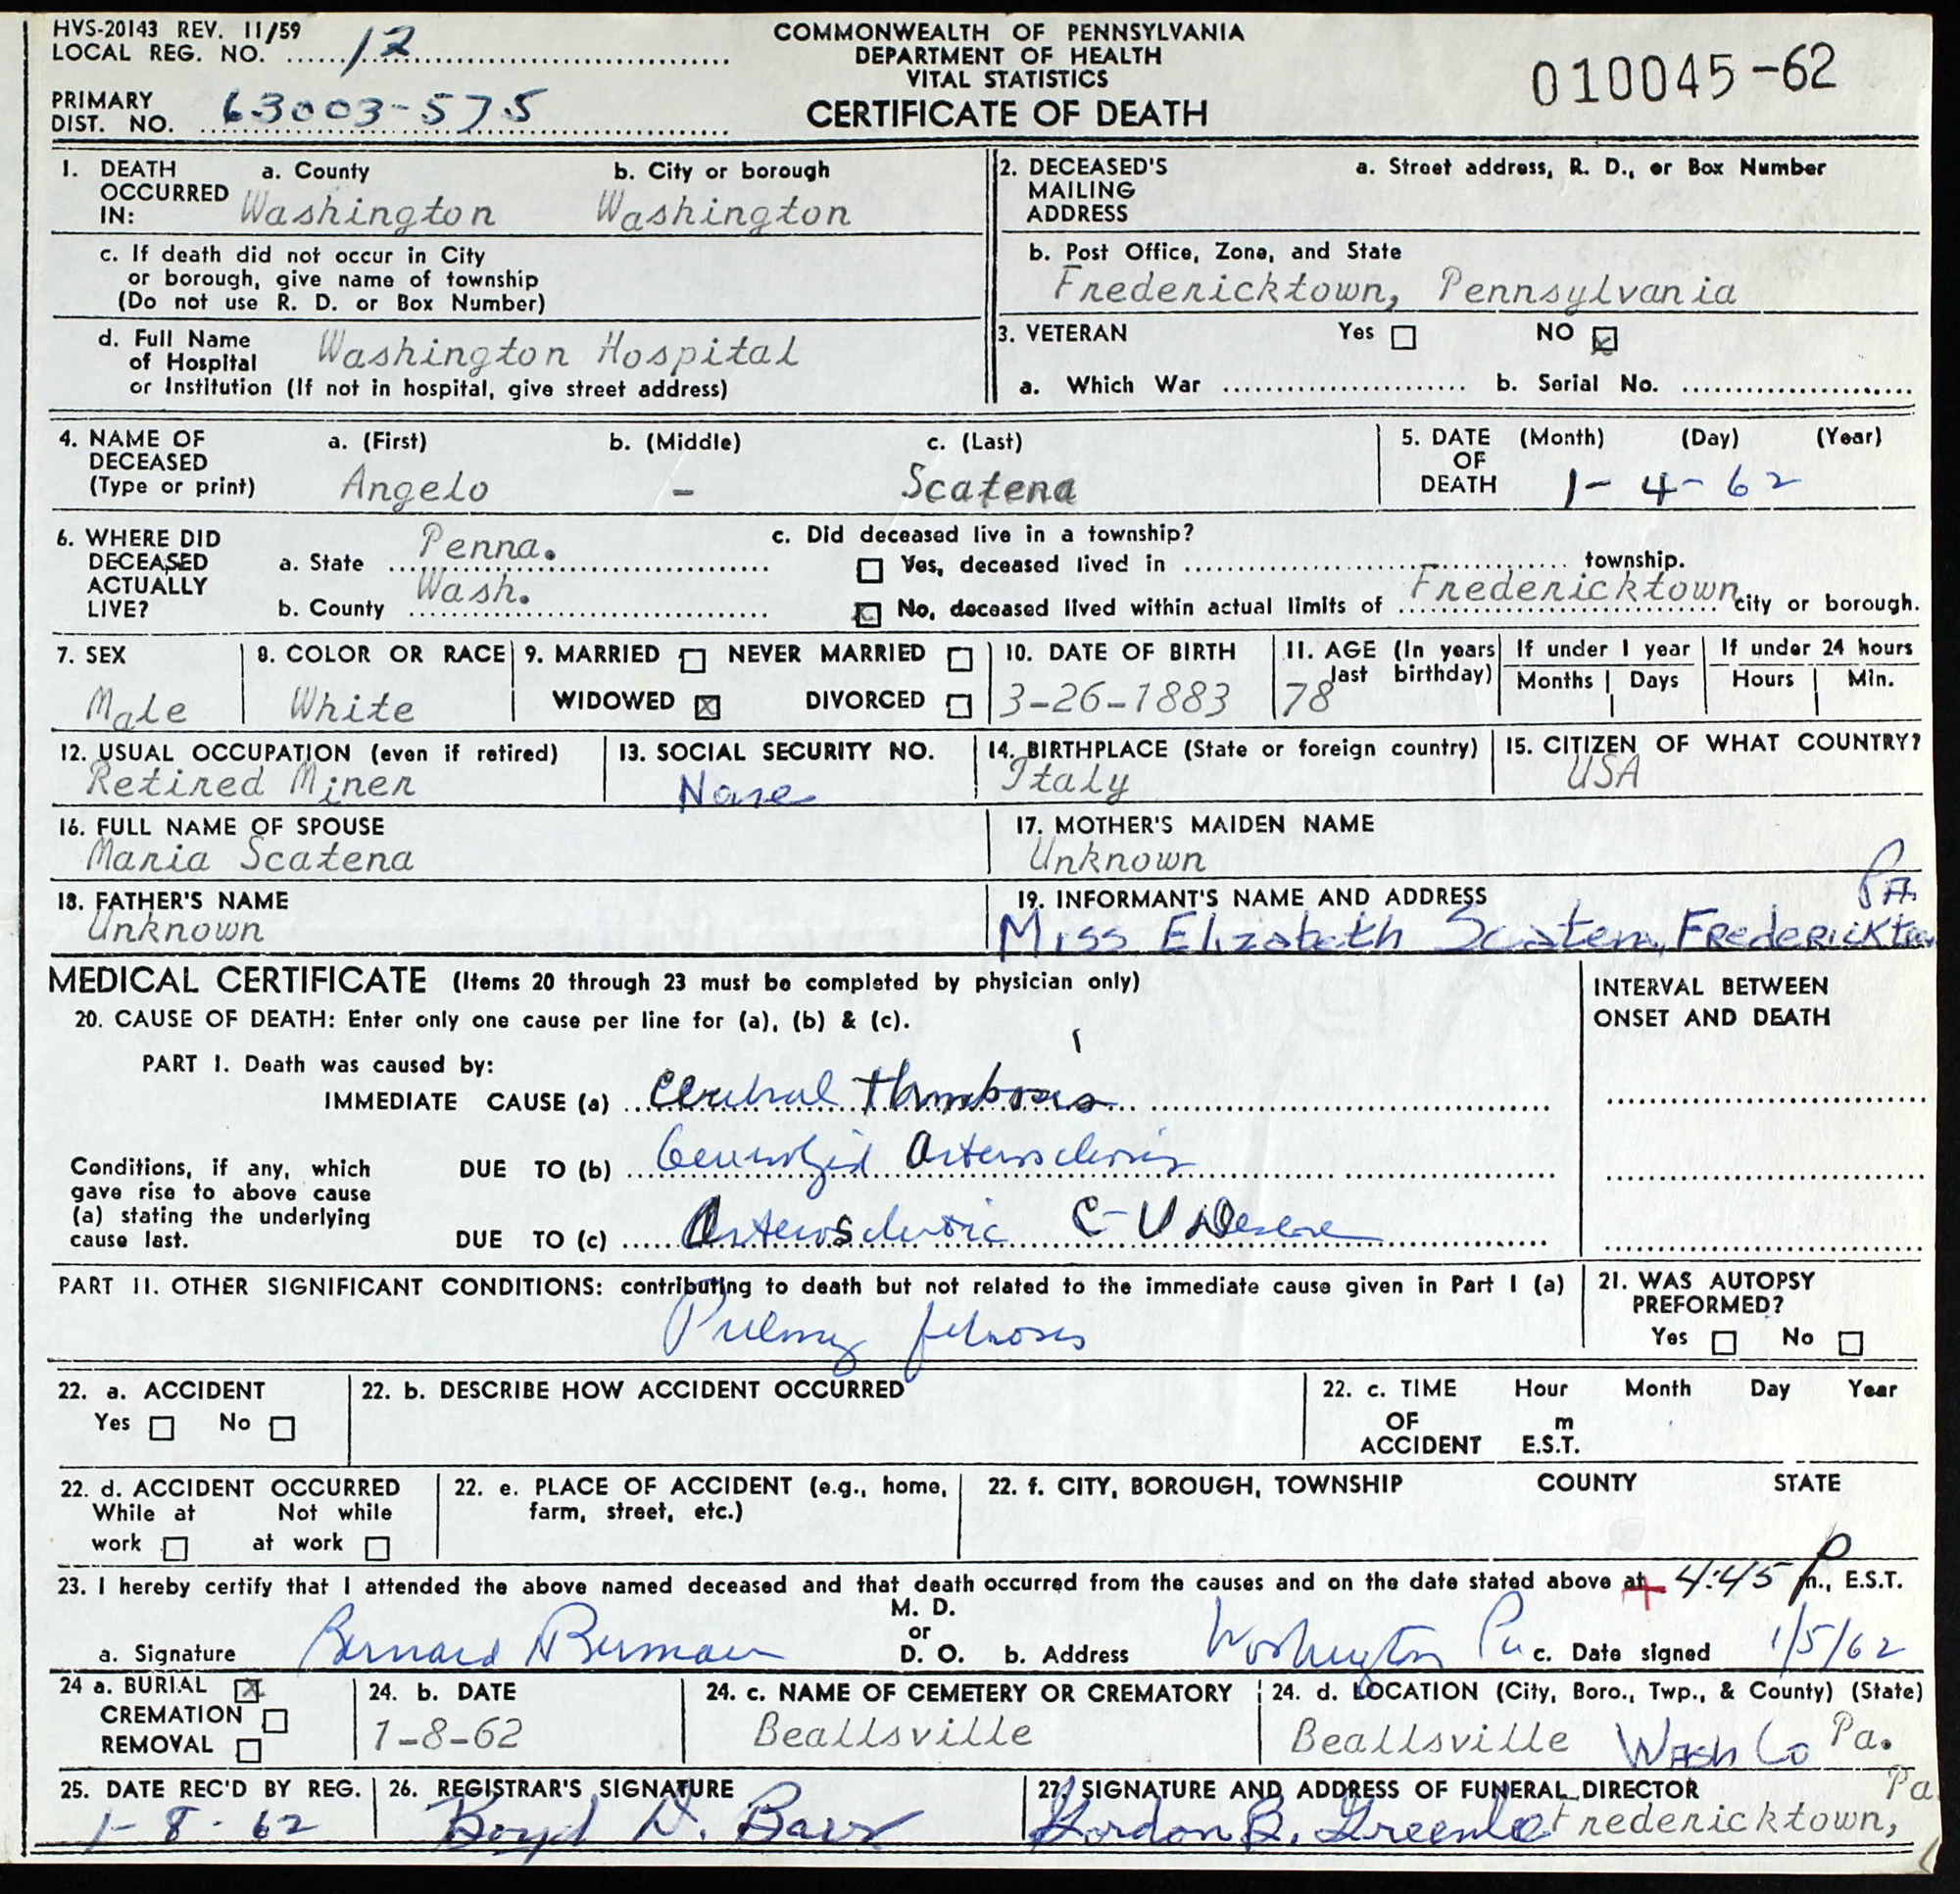 HVS-20143 REV. 11/59
LOCAL REG. NO. 12
PRIMARY DIST. NO. 63003-575
COMMONWEALTH OF PENNSYLVANIA
DEPARTMENT OF HEALTH
VITAL STATISTICS
CERTIFICATE OF DEATH
010045-62
1. DEATH OCCURRED IN: a. County Washington b. City or borough Washington
c. If death did not occur in City
or borough, give name of township
(Do not use R. D. or Box Number)
d. Full Name of Hospital Washington Hospital
or Institution (If not in hospital, give street address)
2. DECEASED'S MAILING ADDRESS a. Street address, R. D., or Box Number
b. Post Office, Zone, and State
Fredericktown, Pennsylvania
3. VETERAN Yes ☐ NO ☒
a. Which War b. Serial No.
4. NAME OF DECEASED (Type or print) a. (First) b. (Middle) c. (Last)
Angelo - Scatena
5. DATE OF DEATH (Month) (Day) (Year)
1-4-62
6. WHERE DID DECEASED ACTUALLY LIVE?
a. State Penna.
b. County Wash.
c. Did deceased live in a township?
☐ Yes, deceased lived in township.
☒ No, deceased lived within actual limits of Fredericktown city or borough.
7. SEX
Male
8. COLOR OR RACE
White
9. MARRIED ☐ NEVER MARRIED ☐
WIDOWED ☒ DIVORCED ☐
10. DATE OF BIRTH
3-26-1883
11. AGE (In years last birthday)
78
If under 1 year
Months Days
If under 24 hours
Hours Min.
12. USUAL OCCUPATION (even if retired)
Retired Miner
13. SOCIAL SECURITY NO.
None
14. BIRTHPLACE (State or foreign country)
Italy
15. CITIZEN OF WHAT COUNTRY?
USA
16. FULL NAME OF SPOUSE
Maria Scatena
17. MOTHER'S MAIDEN NAME
Unknown
18. FATHER'S NAME
Unknown
19. INFORMANT'S NAME AND ADDRESS
Miss Elizabeth Scatena, Fredericktown PA.
MEDICAL CERTIFICATE (Items 20 through 23 must be completed by physician only)
20. CAUSE OF DEATH: Enter only one cause per line for (a), (b) & (c).
INTERVAL BETWEEN
ONSET AND DEATH
PART I. Death was caused by:
IMMEDIATE CAUSE (a) Cerebral Thrombosis
Conditions, if any, which
gave rise to above cause
(a) stating the underlying
cause last.
DUE TO (b) Generalized Arteriosclerosis
DUE TO (c) Arteriosclerotic C-V Disease
PART II. OTHER SIGNIFICANT CONDITIONS: contributing to death but not related to the immediate cause given in Part I (a)
Pulmonary fibrosis
21. WAS AUTOPSY
PREFORMED?
Yes ☐ No ☐
22. a. ACCIDENT
Yes ☐ No ☐
22. b. DESCRIBE HOW ACCIDENT OCCURRED
22. c. TIME OF ACCIDENT Hour Month Day Year
m
E.S.T.
22. d. ACCIDENT OCCURRED
While at work ☐ Not while at work ☐
22. e. PLACE OF ACCIDENT (e.g., home,
farm, street, etc.)
22. f. CITY, BOROUGH, TOWNSHIP COUNTY STATE
23. I hereby certify that I attended the above named deceased and that death occurred from the causes and on the date stated above at 4:45 P m., E.S.T.
a. Signature Bernard A Berman M. D. or D. O. b. Address Washington Pa c. Date signed 1/5/62
24 a. BURIAL ☒
CREMATION ☐
REMOVAL ☐
24. b. DATE
1-8-62
24. c. NAME OF CEMETERY OR CREMATORY
Beallsville
24. d. LOCATION (City, Boro., Twp., & County) (State)
Beallsville Wash Co Pa.
25. DATE REC'D BY REG.
1-8-62
26. REGISTRAR'S SIGNATURE
Boyd D. Barr
27. SIGNATURE AND ADDRESS OF FUNERAL DIRECTOR
Gordon B. Greenlee Fredericktown, Pa